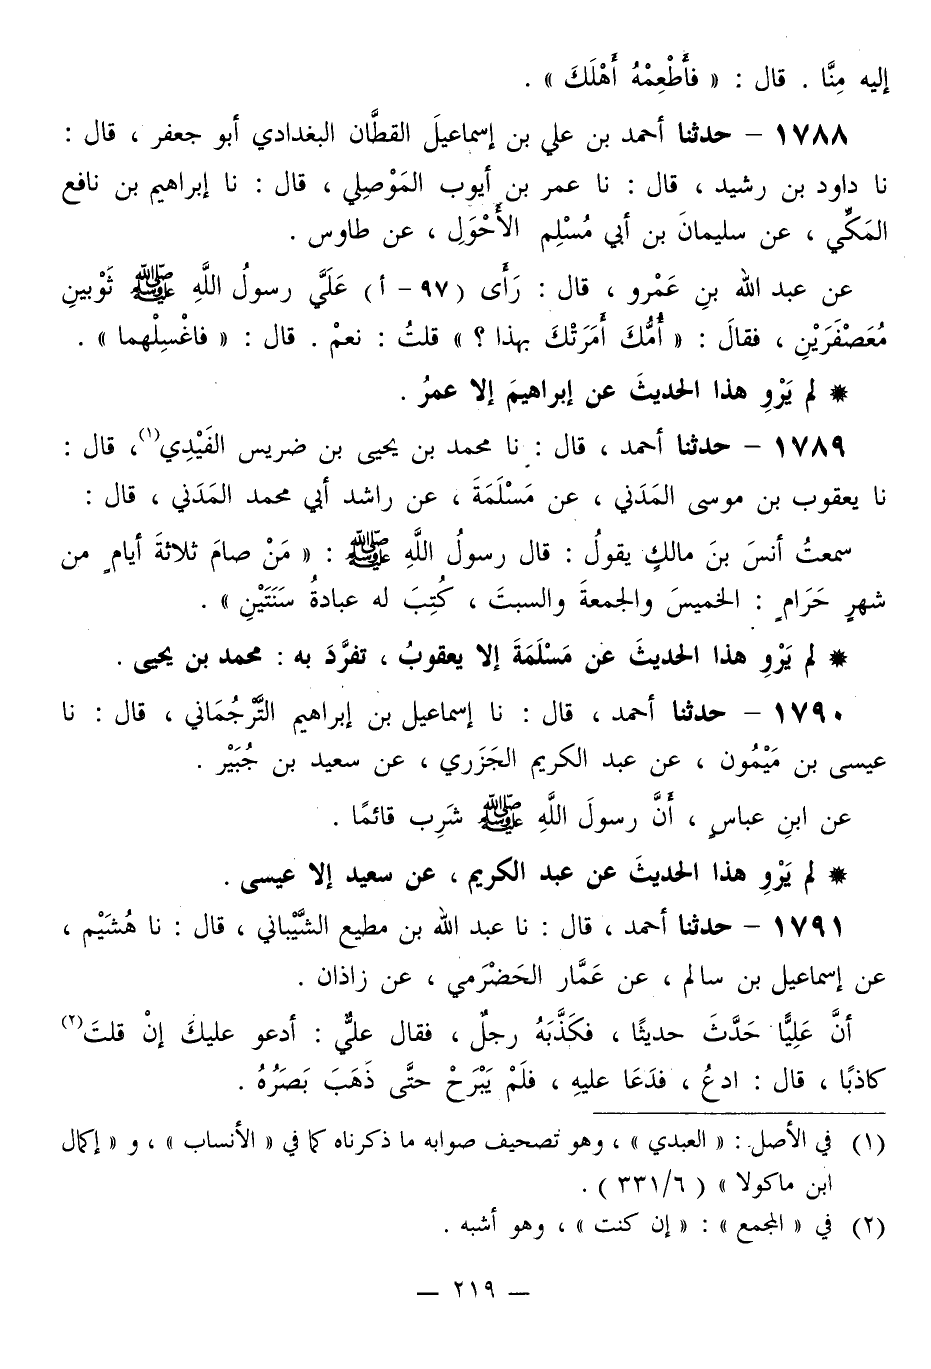 إليه مِنَّا . قال : « فأَطْعِمْهُ أَهْلَكَ » .
١٧٨٨ – حدثنا أحمد بن علي بن إسماعيلَ القطَّان البغدادي أبو جعفر ، قال :
نا داود بن رشيد ، قال : نا عمر بن أيوب المَوْصِلي ، قال : نا إبراهيم بن نافع
المَكِّي ، عن سليمانَ بن أبي مُسْلِم الأَحْوَلِ ، عن طاوس .
عن عبد الله بنِ عَمْرو ، قال : رَأَى (٩٧ – أ) عَلَيَّ رسولُ اللَّهِ ﷺ ثَوْبينِ
مُعَصْفَرَيْنِ ، فقالَ : « أُمُّكَ أَمَرَتْكَ بهذا ؟ » قلتُ : نعمْ . قال : « فاغْسِلْهما » .
* لم يَرْوِ هذا الحديثَ عن إبراهيمَ إلا عمرُ .
١٧٨٩ – حدثنا أحمد ، قال : نا محمد بن يحيى بن ضريس الفَيْدِي(١)، قال :
نا يعقوب بن موسى المَدَني ، عن مَسْلَمَةَ ، عن راشد أبي محمد المَدَني ، قال :
سمعتُ أنسَ بنَ مالكٍ يقولُ : قال رسولُ اللَّهِ ﷺ : « مَنْ صامَ ثلاثةَ أيامٍ من
شهرٍ حَرَامٍ : الخميسَ والجمعةَ والسبتَ ، كُتِبَ له عبادةُ سَنَتَيْنِ » .
* لم يَرْوِ هذا الحديثَ عن مَسْلَمَةَ إلا يعقوبُ ، تفرَّدَ به : محمد بن يحيى .
١٧٩٠ – حدثنا أحمد ، قال : نا إسماعيل بن إبراهيم التَّرْجُمَاني ، قال : نا
عيسى بن مَيْمُون ، عن عبد الكريم الجَزَري ، عن سعيد بن جُبَيْر .
عن ابنِ عباسٍ ، أَنَّ رسولَ اللَّهِ ﷺ شَرِب قائمًا .
* لم يَرْوِ هذا الحديثَ عن عبد الكريم ، عن سعيد إلا عيسى .
١٧٩١ – حدثنا أحمد ، قال : نا عبد الله بن مطيع الشَّيْباني ، قال : نا هُشَيْم ،
عن إسماعيل بن سالم ، عن عَمَّار الحَضْرَمي ، عن زاذان .
أنَّ عَلِيًّا حَدَّثَ حديثًا ، فكَذَّبَهُ رجلٌ ، فقال عليٌّ : أدعو عليكَ إنْ قلتَ(٢)
كاذبًا ، قال : ادعُ ، فدَعَا عليهِ ، فلَمْ يَبْرَحْ حتَّى ذَهَبَ بَصَرُهُ .
(١) في الأصل : « العبدي » ، وهو تصحيف صوابه ما ذكرناه كما في « الأنساب » ، و « إكمال
ابن ماكولا » ( ٣٣١/٦ ) .
(٢) في « المجمع » : « إن كنت » ، وهو أشبه .
— ٢١٩ —